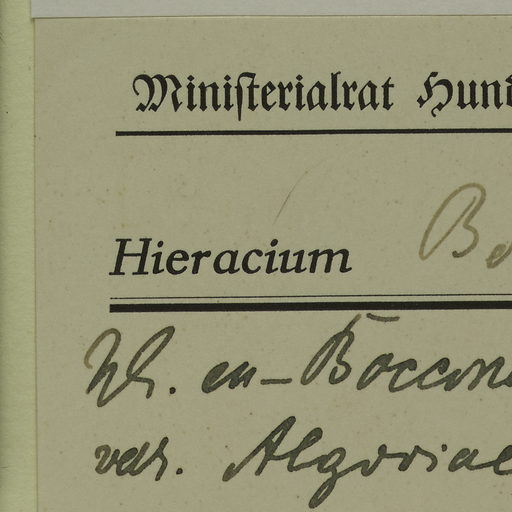 Ministerialrat Hund
Hieracium Bo
W. eu-Boccon
var. Algoviae